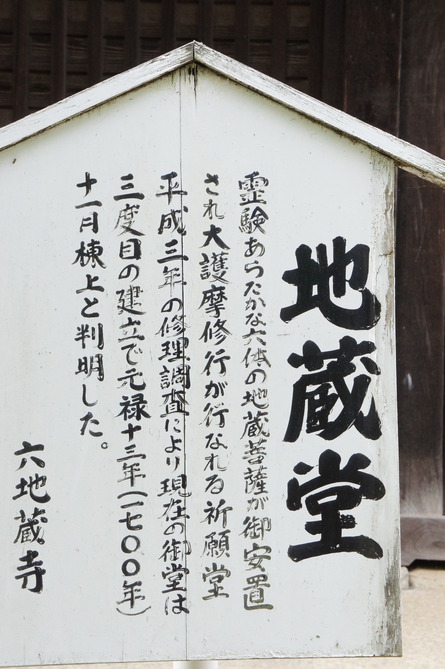 地蔵堂
霊験あらたかな六体の地蔵菩薩が御安置
され大護摩修行が行なれる祈願堂
平成三年の修理調査により現在の御堂は
三度目の建立で元禄十三年(一七〇〇年)
十一月棟上と判明した。
六地蔵寺